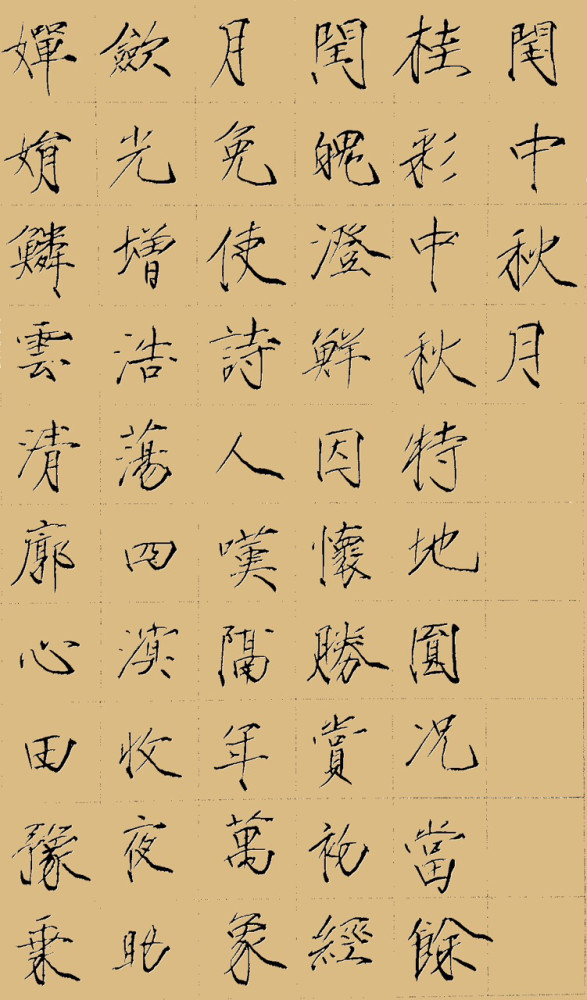 閏中秋月
桂彩中秋特地圓况當餘
閏魄澄鮮因懷勝賞初經
月免使詩人嘆隔年萬象
歛光增浩蕩四溟收夜助
嬋娟鱗雲清廓心田豫乗